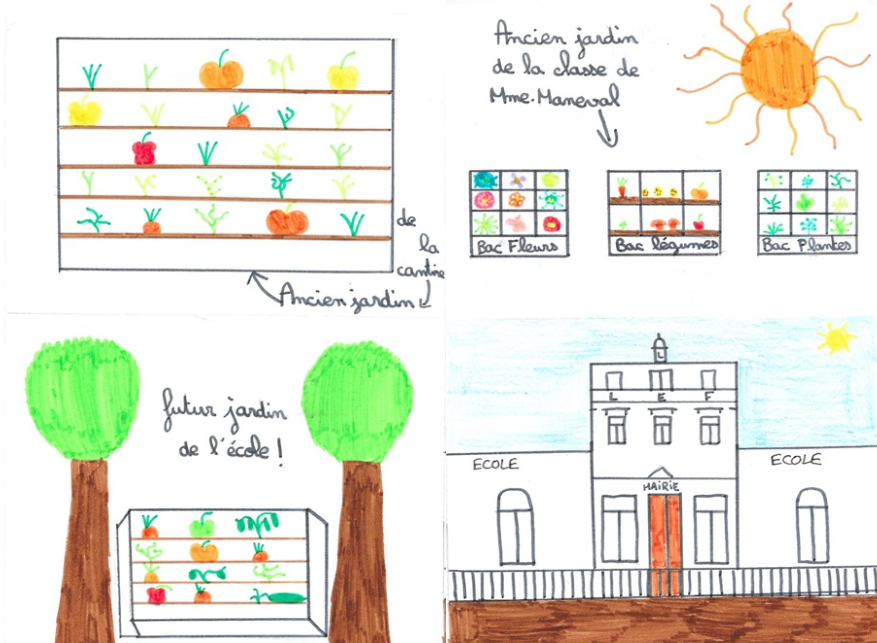 de
la
cantine
Ancien jardin
Ancien jardin
de la classe de
Mme. Maneval
Bac Fleurs
Bac légumes
Bac Plantes
futur jardin
de l'école !
L
L E F
ECOLE
ECOLE
MAiRiE